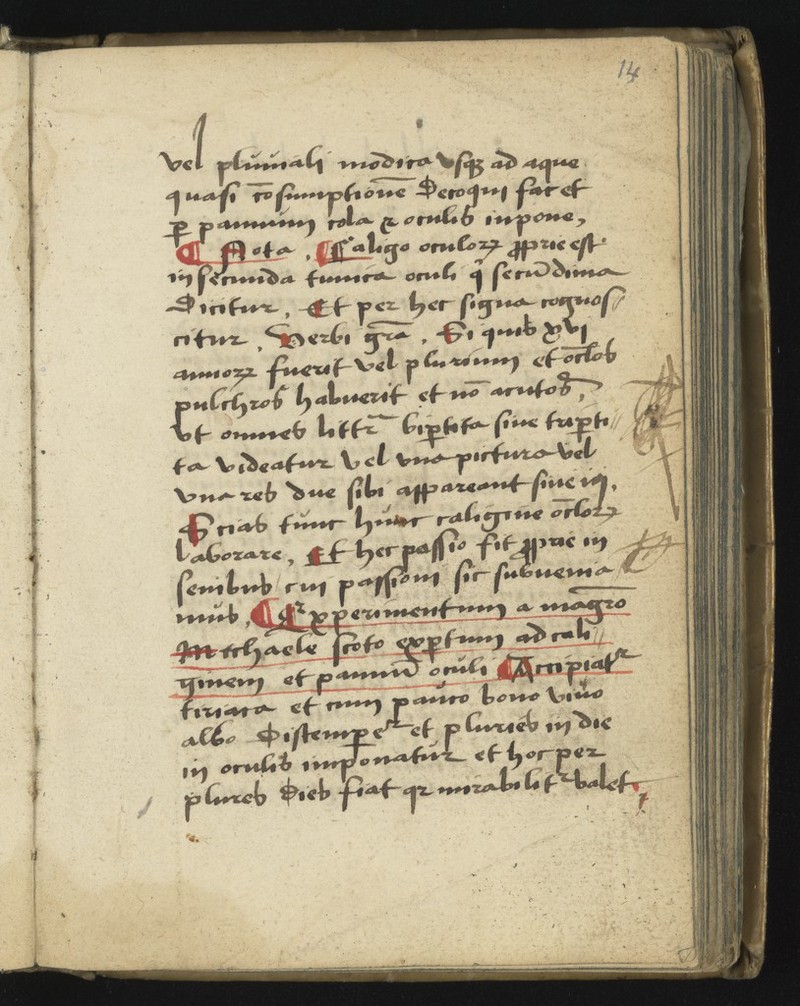 14
vel pluuiali modica vsqꝫ ad aque
quasi cōsumptionē Decoqui facet
ꝑ pannum cola ⁊ oculis inpone,
¶ Nota . ¶ Caligo oculoꝝ ꝓprie est
in secunda tunica oculi q̄ secūdina
Dicitur . Et per hec signa cognos//
citur . Verbi grā . Si quis xvi
annoꝝ fuerit vel plurium et oc̄los
pulchros habuerit et nō acutos,
vt omnes littr̄ bip̄tita siue trip̄ti//
ta videatur vel vna pictura vel
vna res due sibi appareant siue iij.
Scias tunc hunc caligine oc̄loꝝ
laborare, Et hec passio fit ꝓprie in
senibus / cui passioni sic subuenia
mus, ¶ Experimentum a magr̄o
Michaele scoto exꝑtum ad cali//
ginem et pannū oculi ¶ Accipiatᷣ
tiriaca et cum pauco bono vino
albo Distempeᷣ et pluries in die
in oculis imponatur et hoc per
plures Dies fiat qꝛ mirabilitᷣ valet,